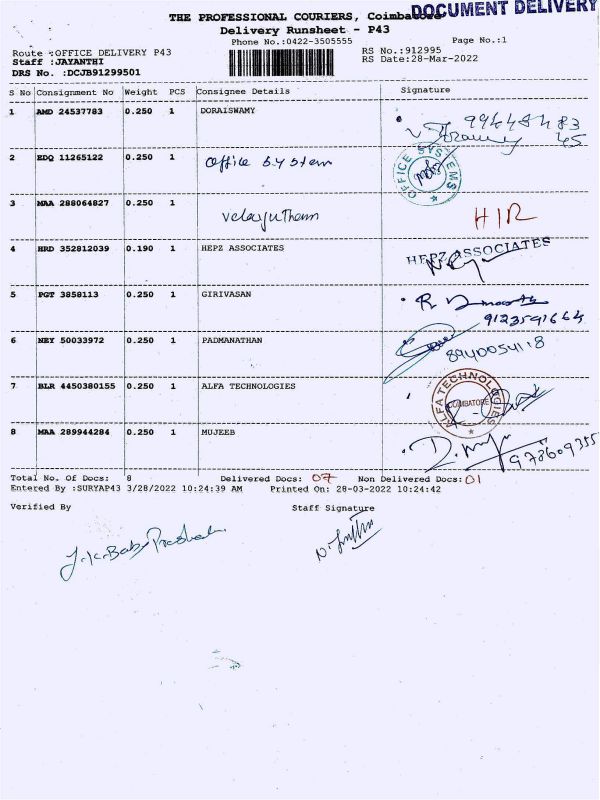 DOCUMENT DELIVERY
THE PROFESSIONAL COURIERS, Coimbatore
Delivery Runsheet - P43
Phone No.:0422-3505555 Page No.:1
Route :OFFICE DELIVERY P43 RS No.:912995
Staff :JAYANTHI RS Date:28-Mar-2022
DRS No. :DCJB91299501
S No Consignment No Weight PCS Consignee Details Signature
1 AMD 24537783 0.250 1 DORAISWAMY
2 EDQ 11265122 0.250 1 Office System OFFICE SYSTEMS
3 MAA 288064827 0.250 1 Velayutham
4 HRD 352812039 0.190 1 HEPZ ASSOCIATES HEPZ ASSOCIATES
5 PGT 3858113 0.250 1 GIRIVASAN
9123591664
6 NEY 50033972 0.250 1 PADMANATHAN 8940054118
7 BLR 4450380155 0.250 1 ALFA TECHNOLOGIES ALFA TECHNOLOGIES COIMBATORE
8 MAA 289944284 0.250 1 MUJEEB
Total No. Of Docs: 8 Delivered Docs: 07 Non Delivered Docs: 01
Entered By :SURYAP43 3/28/2022 10:24:39 AM Printed On: 28-03-2022 10:24:42
Verified By Staff Signature